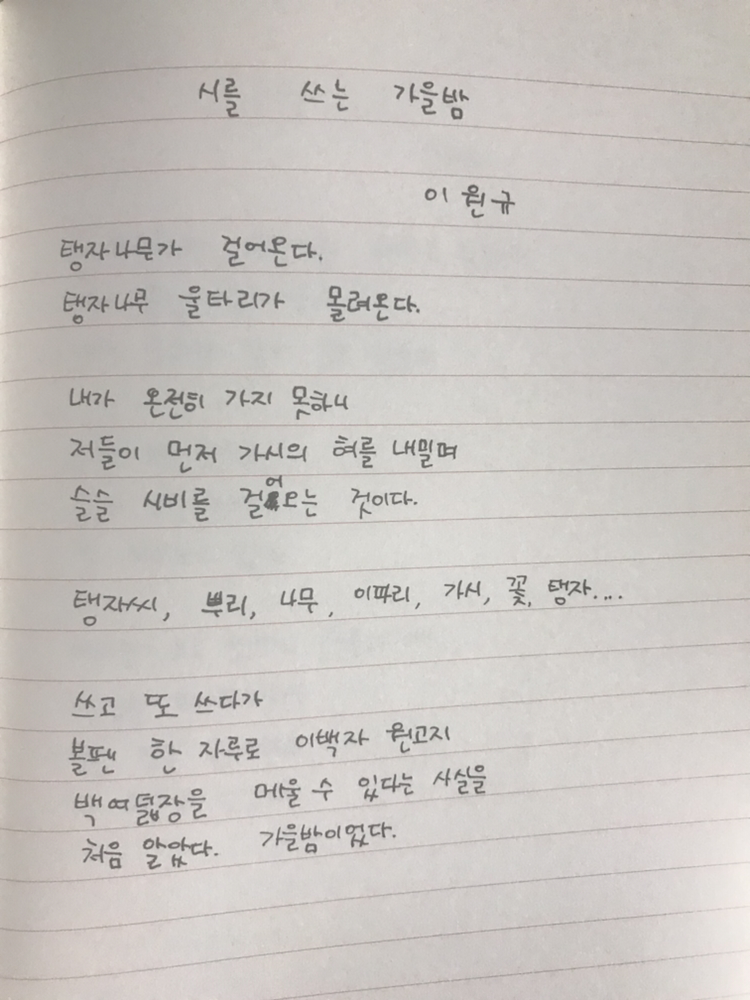 시를 쓰는 가을밤
이원규
탱자나무가 걸어온다.
탱자나무 울타리가 몰려온다.
내가 온전히 가지 못하니
저들이 먼저 가시의 혀를 내밀며
슬슬 시비를 걸어오는 것이다.
탱자씨, 뿌리, 나무, 이파리, 가시, 꽃, 탱자....
쓰고 또 쓰다가
볼펜 한 자루로 이백자 원고지
백여덟장을 메울 수 있다는 사실을
처음 알았다. 가을밤이었다.